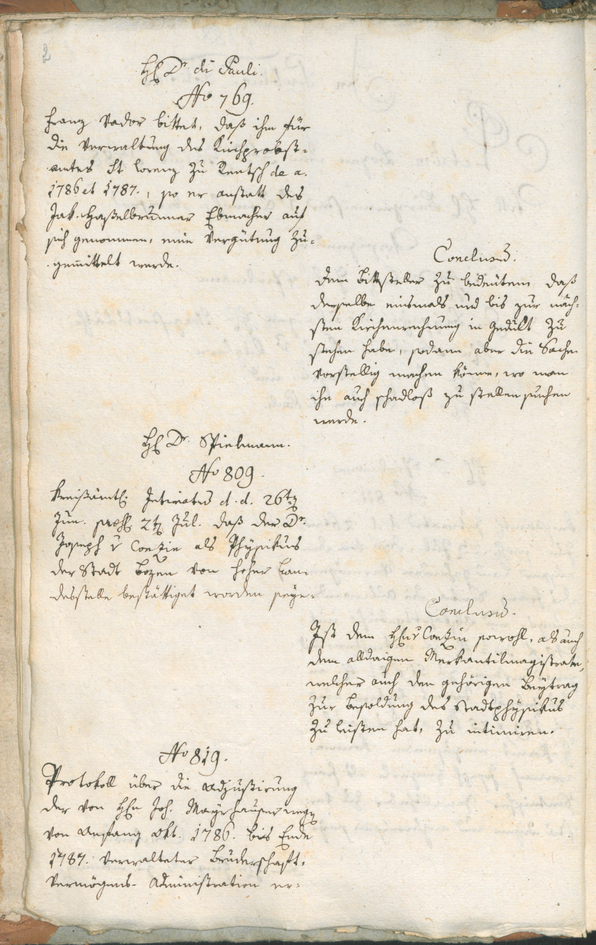 2
H. Dr. di Pauli.
No 769.
Franz Vador bittet, daß ihm für
die Verwaltung des Kirchprobst-
amtes St. Lorenz zu Rentsch de a.
1786 et 1787., so er anstatt des
Jak. Haßelbrunner Ebmacher auf
sich genommen, eine Vergütung zu-
gemittelt werde.
Conclusum.
Dem Bittsteller zu bedeuten, daß
derselbe einsmals und bis zur näch-
sten Kirchenrechnung in Geduld zu
stehen habe, sodann aber die Sache
vorstellig machen könne, wo man
ihn auch schadloß zu stellen suchen
werde.
H. Dr. Spielmann.
No 809.
Kreisämtl. Intimatum d. d. 26ten
Jun. prßt. 2ten Jul. daß der Dr.
Joseph v Conzin als Physikus
der Stadt Bozen von hoher Lan-
desstelle bestättiget worden seye.
Conclusum.
Ist dem Hrn v Conzin sowohl, als auch
dem alldaigen Merkantilmagistrate,
welcher auch den gehörigen Beytrag
zur Besoldung des Stadtphysikus
zu leisten hat, zu intimiren.
No 819.
Protokoll über die Adjustirung
der von Hrn Joh. Mayrhauser
von Anfang Okt. 1786. bis Ende
1787. verwalteter Bruderschaft-
Vermögens-Administration er-